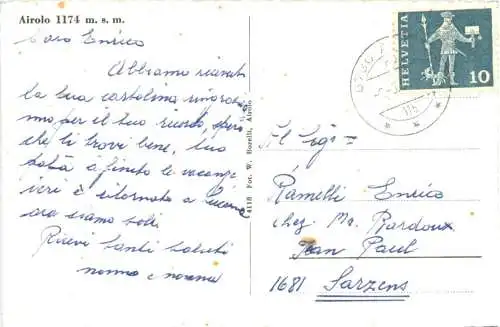 Airolo 1174 m. s. m.
Caro Enrico
Abbiamo ricevuto
la tua cartolina
per il tuo ricordo, spero
che ti trovi bene, tuo
à finito le vacanze
è ritornato a
ora siamo soli
Ricevi tanti saluti
nonno e nonna
4118 Fot. W. Bozzelli, Airolo
HELVETIA
10
Al Sig=
Ramelli Enrico
chez Mr. Pardoux
Jean Paul
1681 Sarzens